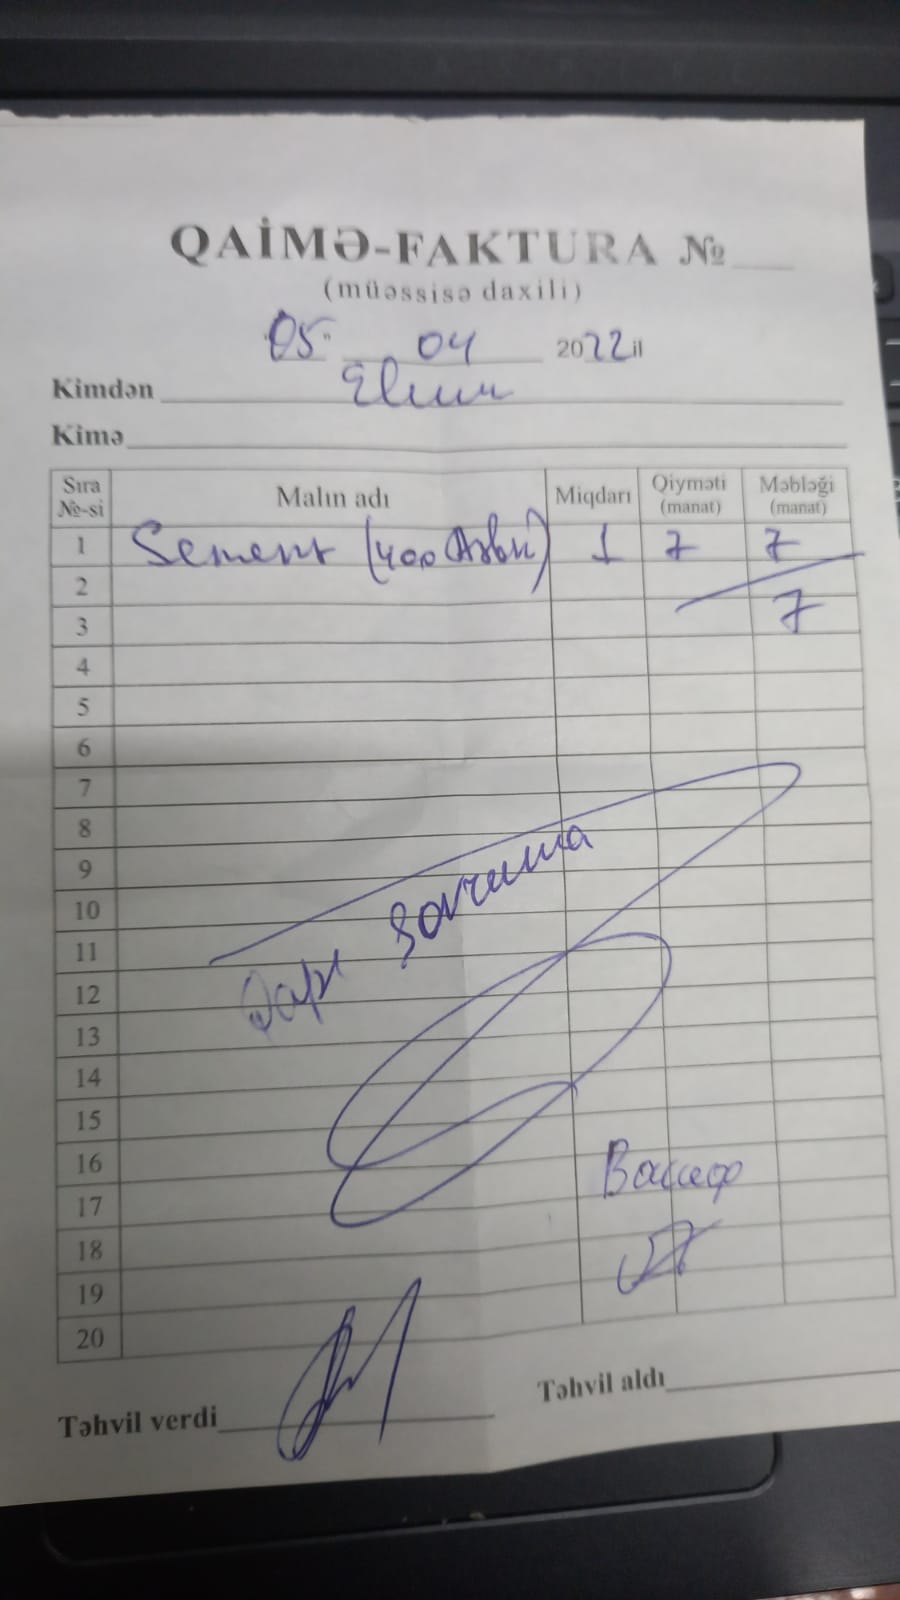 QAİMƏ-FAKTURA №
(müəssisə daxili)
05 04 2022 il
Kimdən
Kimə
Sıra №-si Malın adı Miqdarı Qiyməti (manat) Məbləği (manat)
1 Sement (400 1 7 7
2
3 7
4
5
6
7
8
9
10
11
12
13
14
15
16
17
18
19
20
Təhvil verdi Təhvil aldı